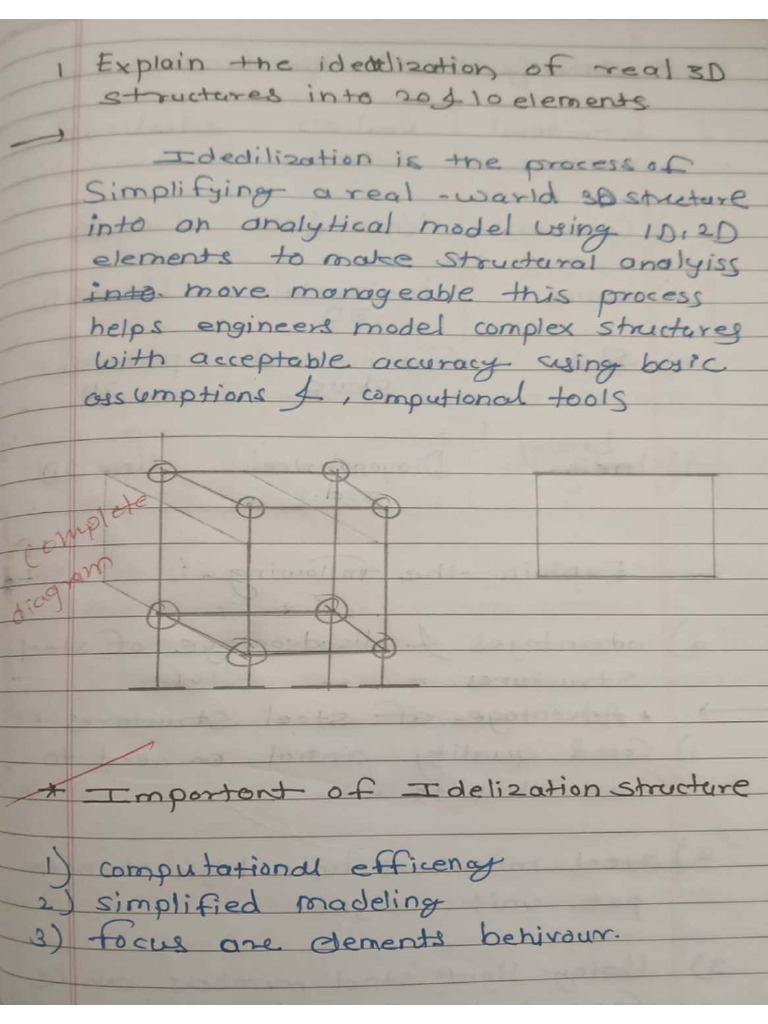 1 Explain the idealization of real 3D
structures into 2D & 1D elements
→
Idedilization is the process of
Simplifying a real -warld 3D structure
into an analytical model using 1D, 2D
elements to make structural analyiss
into. move manageable this process
helps engineers model complex structures
with acceptable accuracy using basic
assumptions &, computional tools
complete
diagram
* Importent of Idelization structure
1) computational efficency
2) simplified madeling
3) focus are elements behivour.